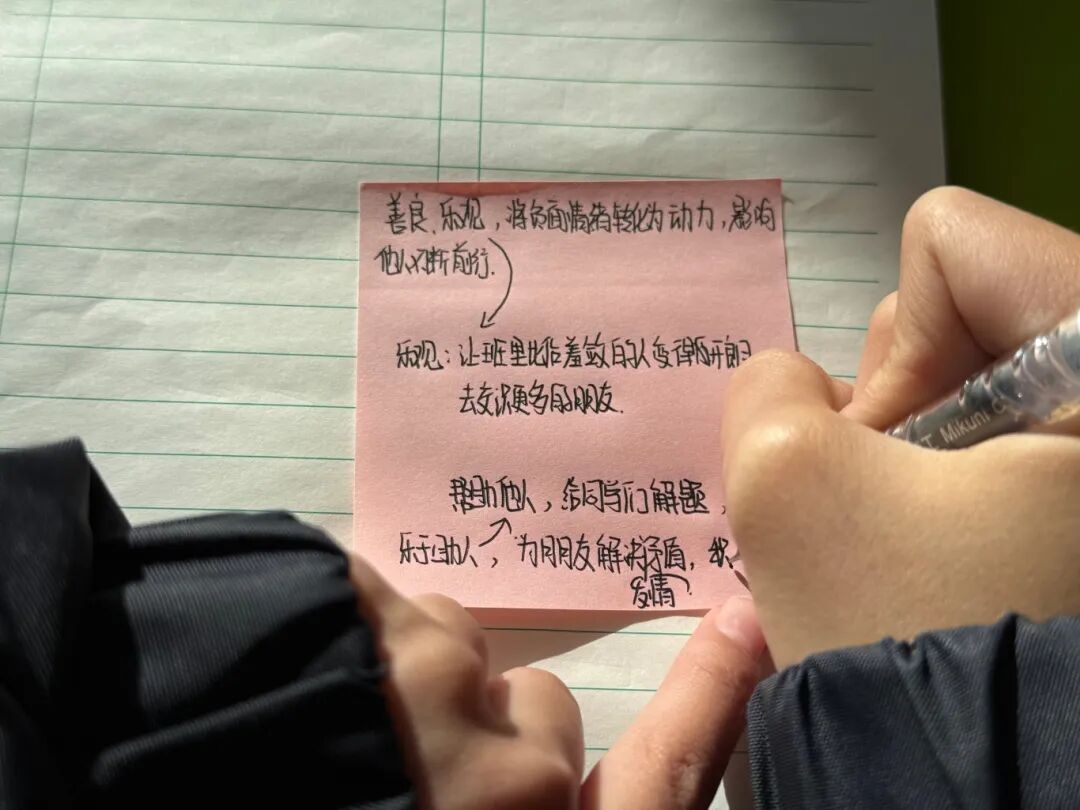 善良、乐观，将负面情绪转化为动力，影响
他人不断前行.
乐观：让班里比较羞敛的人变得开朗
去交识更多的朋友.
帮助他人，给同学们解题，
乐于助人，为朋友解决矛盾，我
友情?
T. Mikuni